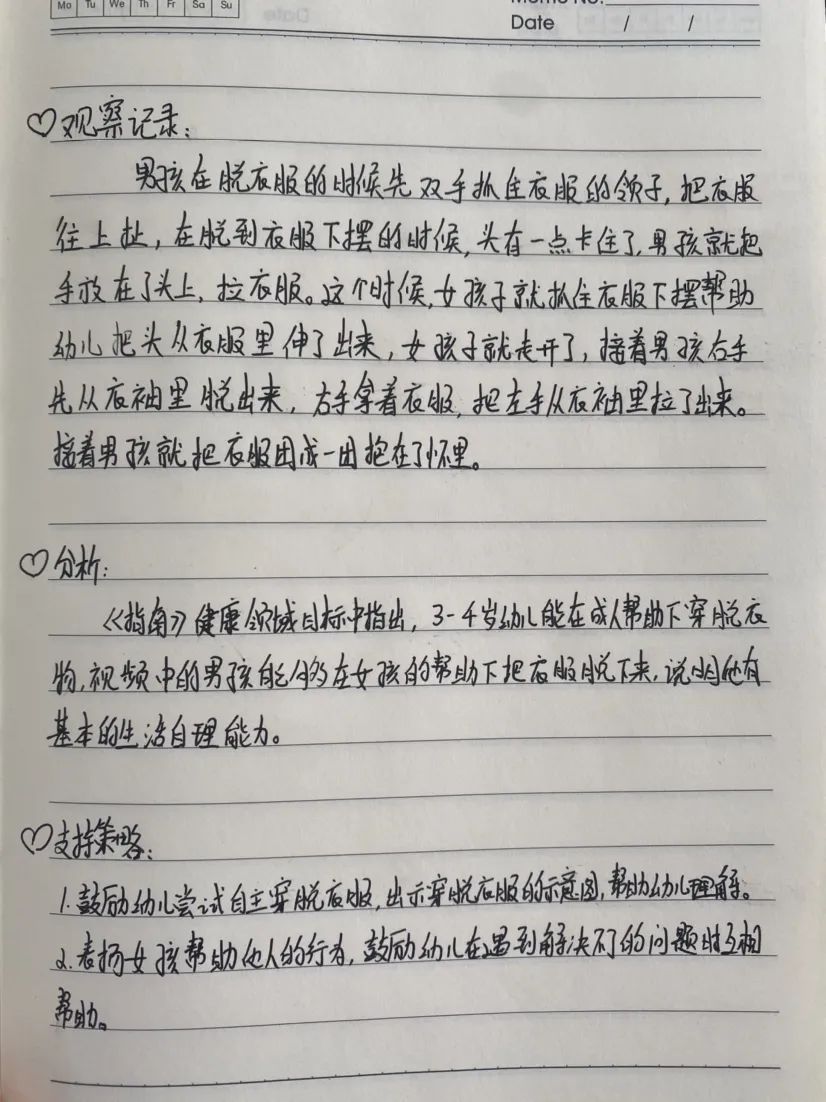 Mo Tu We Th Fr Sa Su
Memo No.
Date / /
♡观察记录:
男孩在脱衣服的时候先双手抓住衣服的领子,把衣服
往上扯,在脱到衣服下摆的时候,头有一点卡住了,男孩就把
手放在了头上,拉衣服。这个时候,女孩子就抓住衣服下摆帮助
幼儿把头从衣服里伸了出来,女孩子就走开了,接着男孩右手
先从衣袖里脱出来,右手拿着衣服,把左手从衣袖里拉了出来。
接着男孩就把衣服团成一团抱在了怀里。
♡分析:
《指南》健康领域目标中指出,3-4岁幼儿能在成人帮助下穿脱衣
物,视频中的男孩能够在女孩的帮助下把衣服脱下来,说明他有
基本的生活自理能力。
♡支持策略:
1.鼓励幼儿尝试自主穿脱衣服,出示穿脱衣服的示意图,帮助幼儿理解。
2.表扬女孩帮助他人的行为,鼓励幼儿在遇到解决不了的问题时互相
帮助。